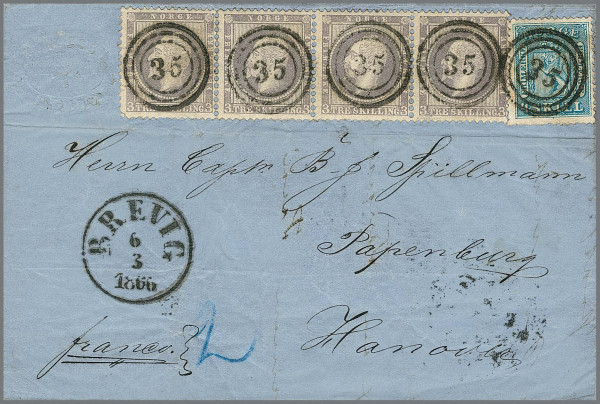 NORGE NORGE NORGE NORGE
35 35 35 35 35
3 TRE SKILLING 3 3 TRE SKILLING 3 3 TRE SKILLING 3 3 TRE SKILLING 3
Herrn Captn B. J. Spillmann
BREVIG
6
3
1866
Papenburg
franco.
2
Hanover